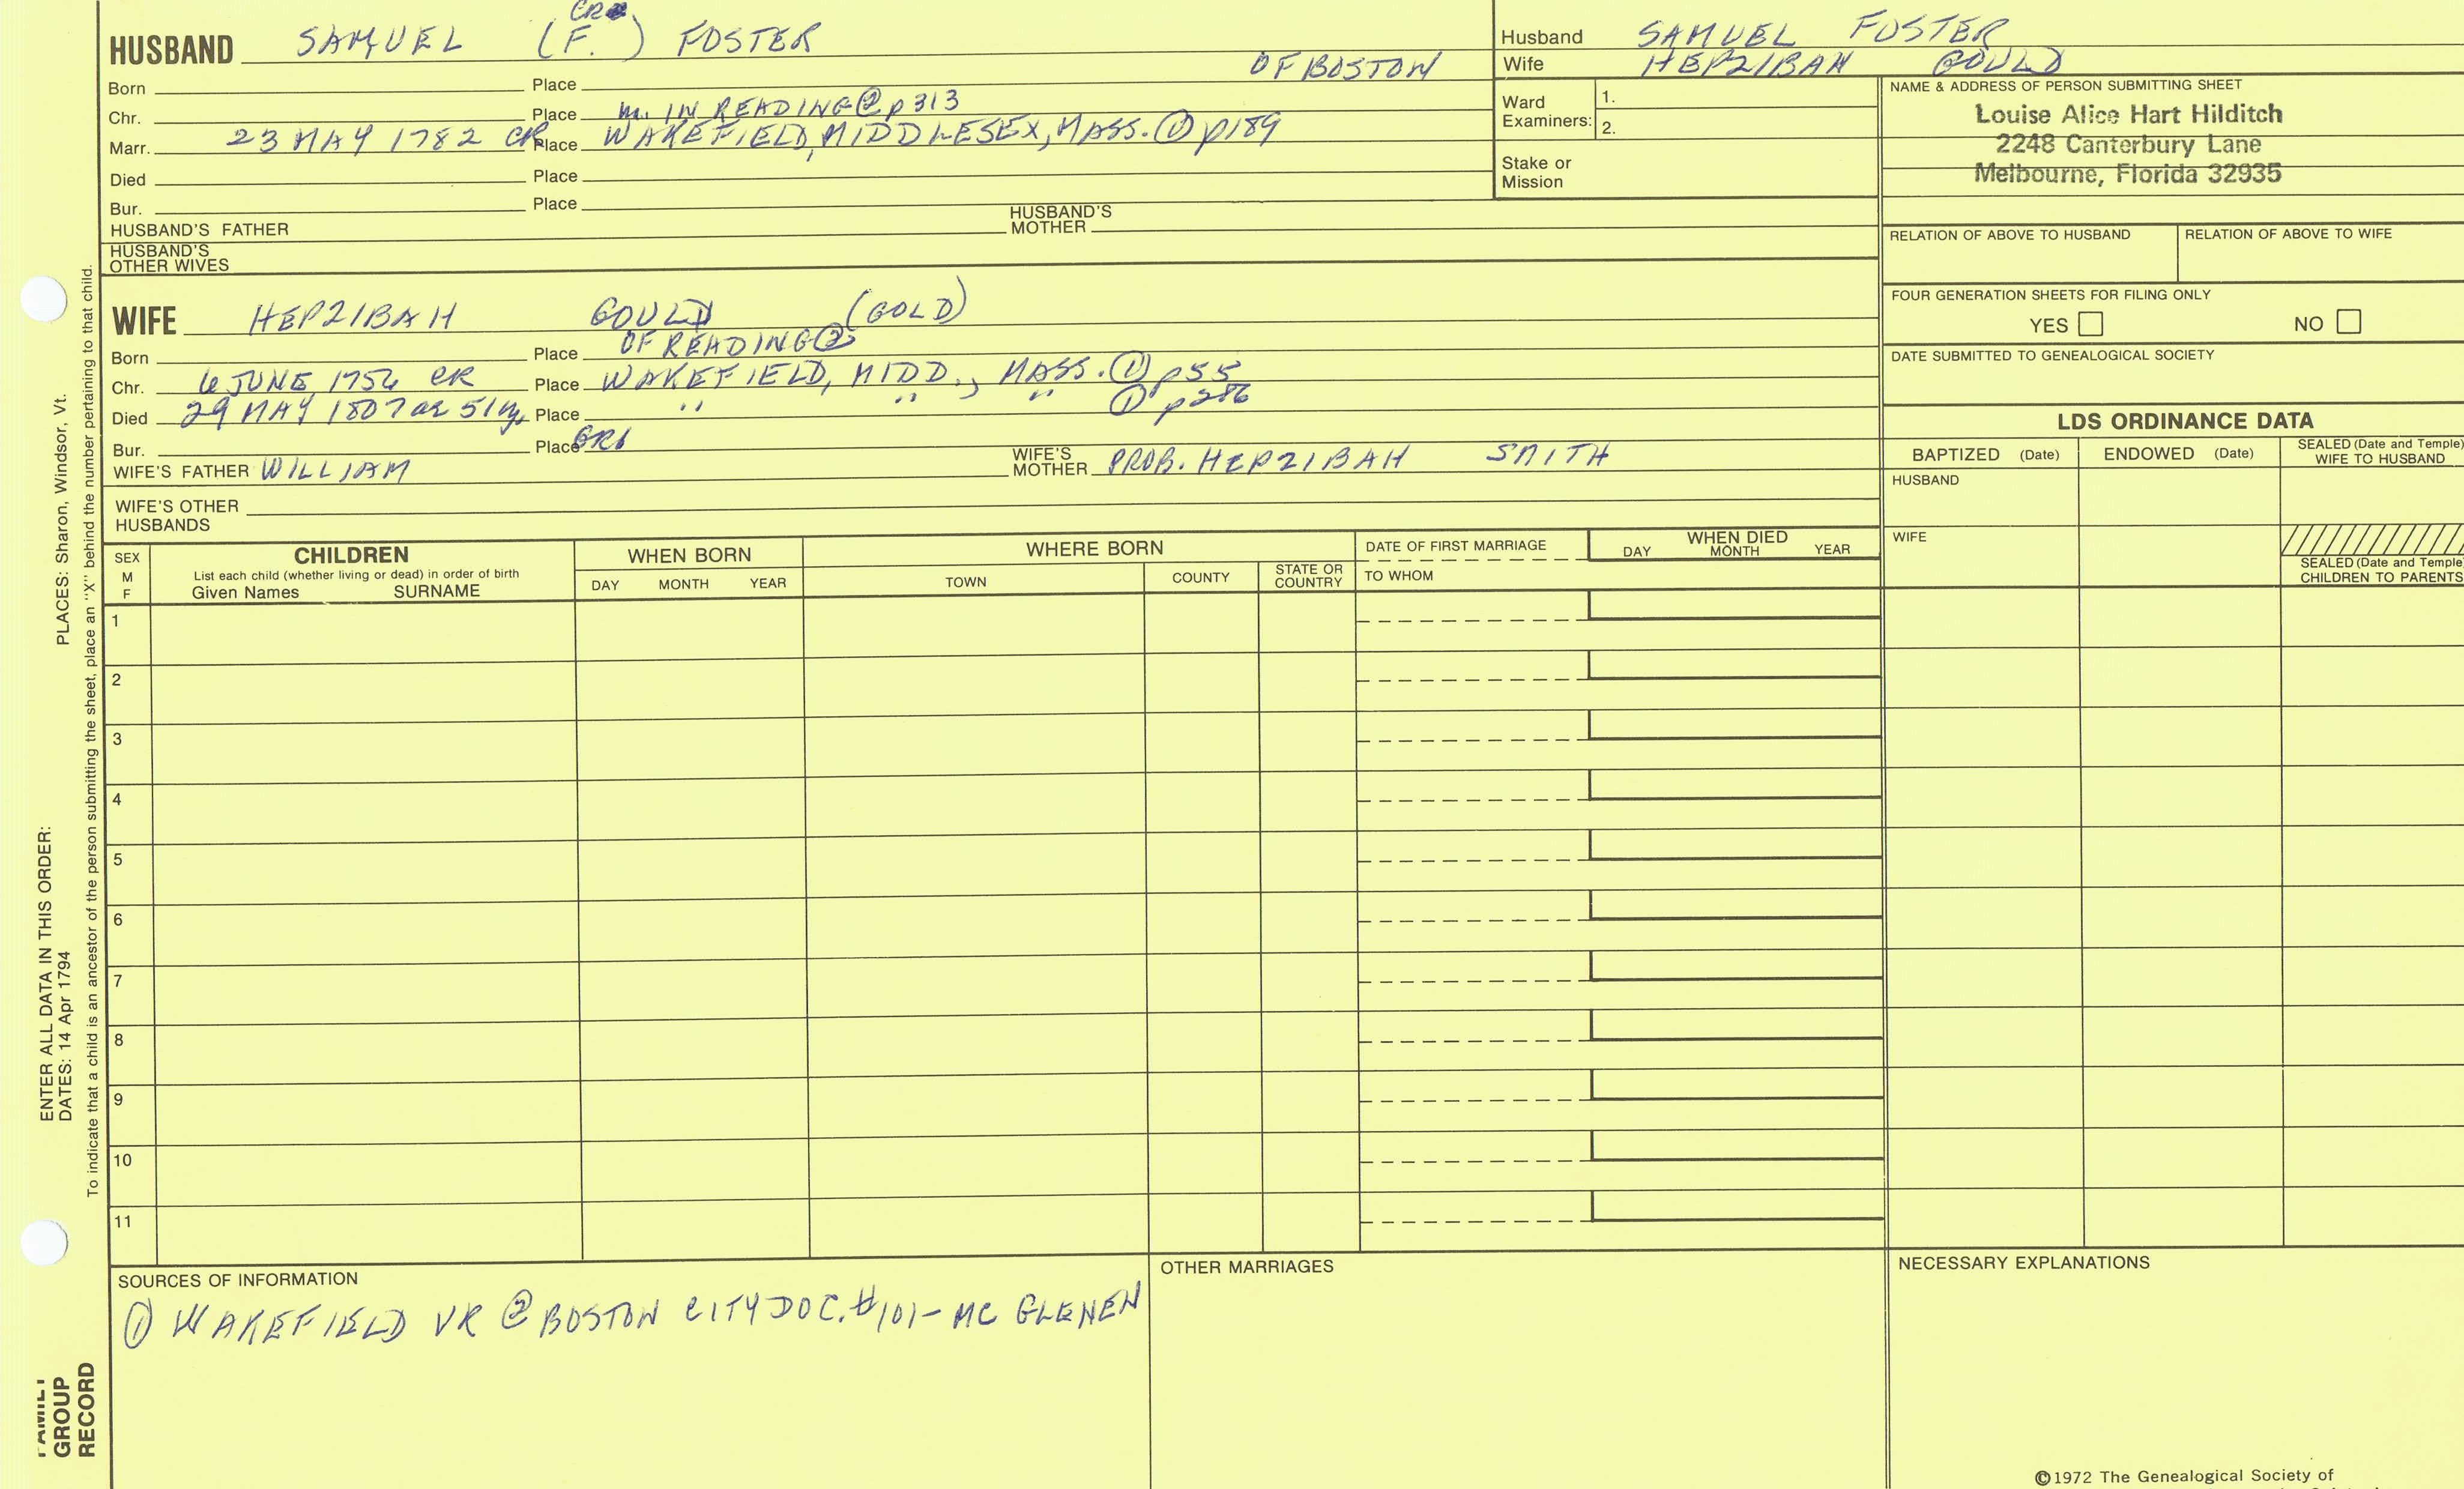 HUSBAND SAMUEL (F.) FOSTER
CR
OF BOSTON
Born Place
Chr. Place m. IN READING ② p 313
Marr. 23 MAY 1782 CR Place WAKEFIELD, MIDDLESEX, MASS. ① p189
Died Place
Bur. Place
HUSBAND'S FATHER HUSBAND'S MOTHER
HUSBAND'S OTHER WIVES
Husband SAMUEL FOSTER
Wife HEPZIBAH GOULD
Ward Examiners: 1.
2.
Stake or Mission
NAME & ADDRESS OF PERSON SUBMITTING SHEET
Louise Alice Hart Hilditch
2248 Canterbury Lane
Melbourne, Florida 32935
RELATION OF ABOVE TO HUSBAND RELATION OF ABOVE TO WIFE
FOUR GENERATION SHEETS FOR FILING ONLY
YES NO
DATE SUBMITTED TO GENEALOGICAL SOCIETY
WIFE HEPZIBAH GOULD (GOLD)
Born Place OF READING ②
Chr. 6 JUNE 1756 CR Place WAKEFIELD, MIDD., MASS. ① p55
Died 29 MAY 1807 ae 51y, Place " " " ① p286
Bur. Place GR1
WIFE'S FATHER WILLIAM WIFE'S MOTHER PROB. HEPZIBAH SMITH
WIFE'S OTHER HUSBANDS
LDS ORDINANCE DATA
BAPTIZED (Date) ENDOWED (Date) SEALED (Date and Temple) WIFE TO HUSBAND
HUSBAND
WIFE
SEALED (Date and Temple) CHILDREN TO PARENTS
SEX M F
CHILDREN
List each child (whether living or dead) in order of birth
Given Names SURNAME
WHEN BORN
DAY MONTH YEAR
WHERE BORN
TOWN COUNTY STATE OR COUNTRY
DATE OF FIRST MARRIAGE
TO WHOM
WHEN DIED
DAY MONTH YEAR
1
2
3
4
5
6
7
8
9
10
11
SOURCES OF INFORMATION
① WAKEFIELD VR ② BOSTON CITY DOC. #101- MC GLENEN
OTHER MARRIAGES
NECESSARY EXPLANATIONS
©1972 The Genealogical Society of
ENTER ALL DATA IN THIS ORDER:
DATES: 14 Apr 1794 PLACES: Sharon, Windsor, Vt.
To indicate that a child is an ancestor of the person submitting the sheet, place an "X" behind the number pertaining to that child.
FAMILY
GROUP
RECORD